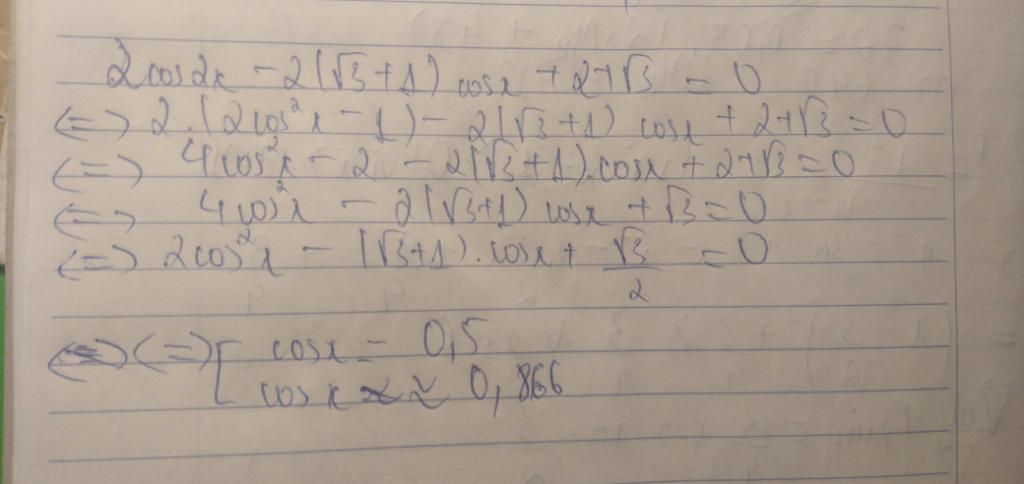 2cos2x − 2(√3+1) cosx + 2+√3 = 0
<=> 2.(2cos²x − 1) − 2(√3+1) cosx + 2+√3 = 0
<=> 4cos²x − 2 − 2(√3+1).cosx + 2+√3 = 0
<=> 4cos²x − 2(√3+1) cosx + √3 = 0
<=> 2cos²x − (√3+1).cosx + √3/2 = 0
<=> [ cosx = 0,5
cosx ≈ 0,866